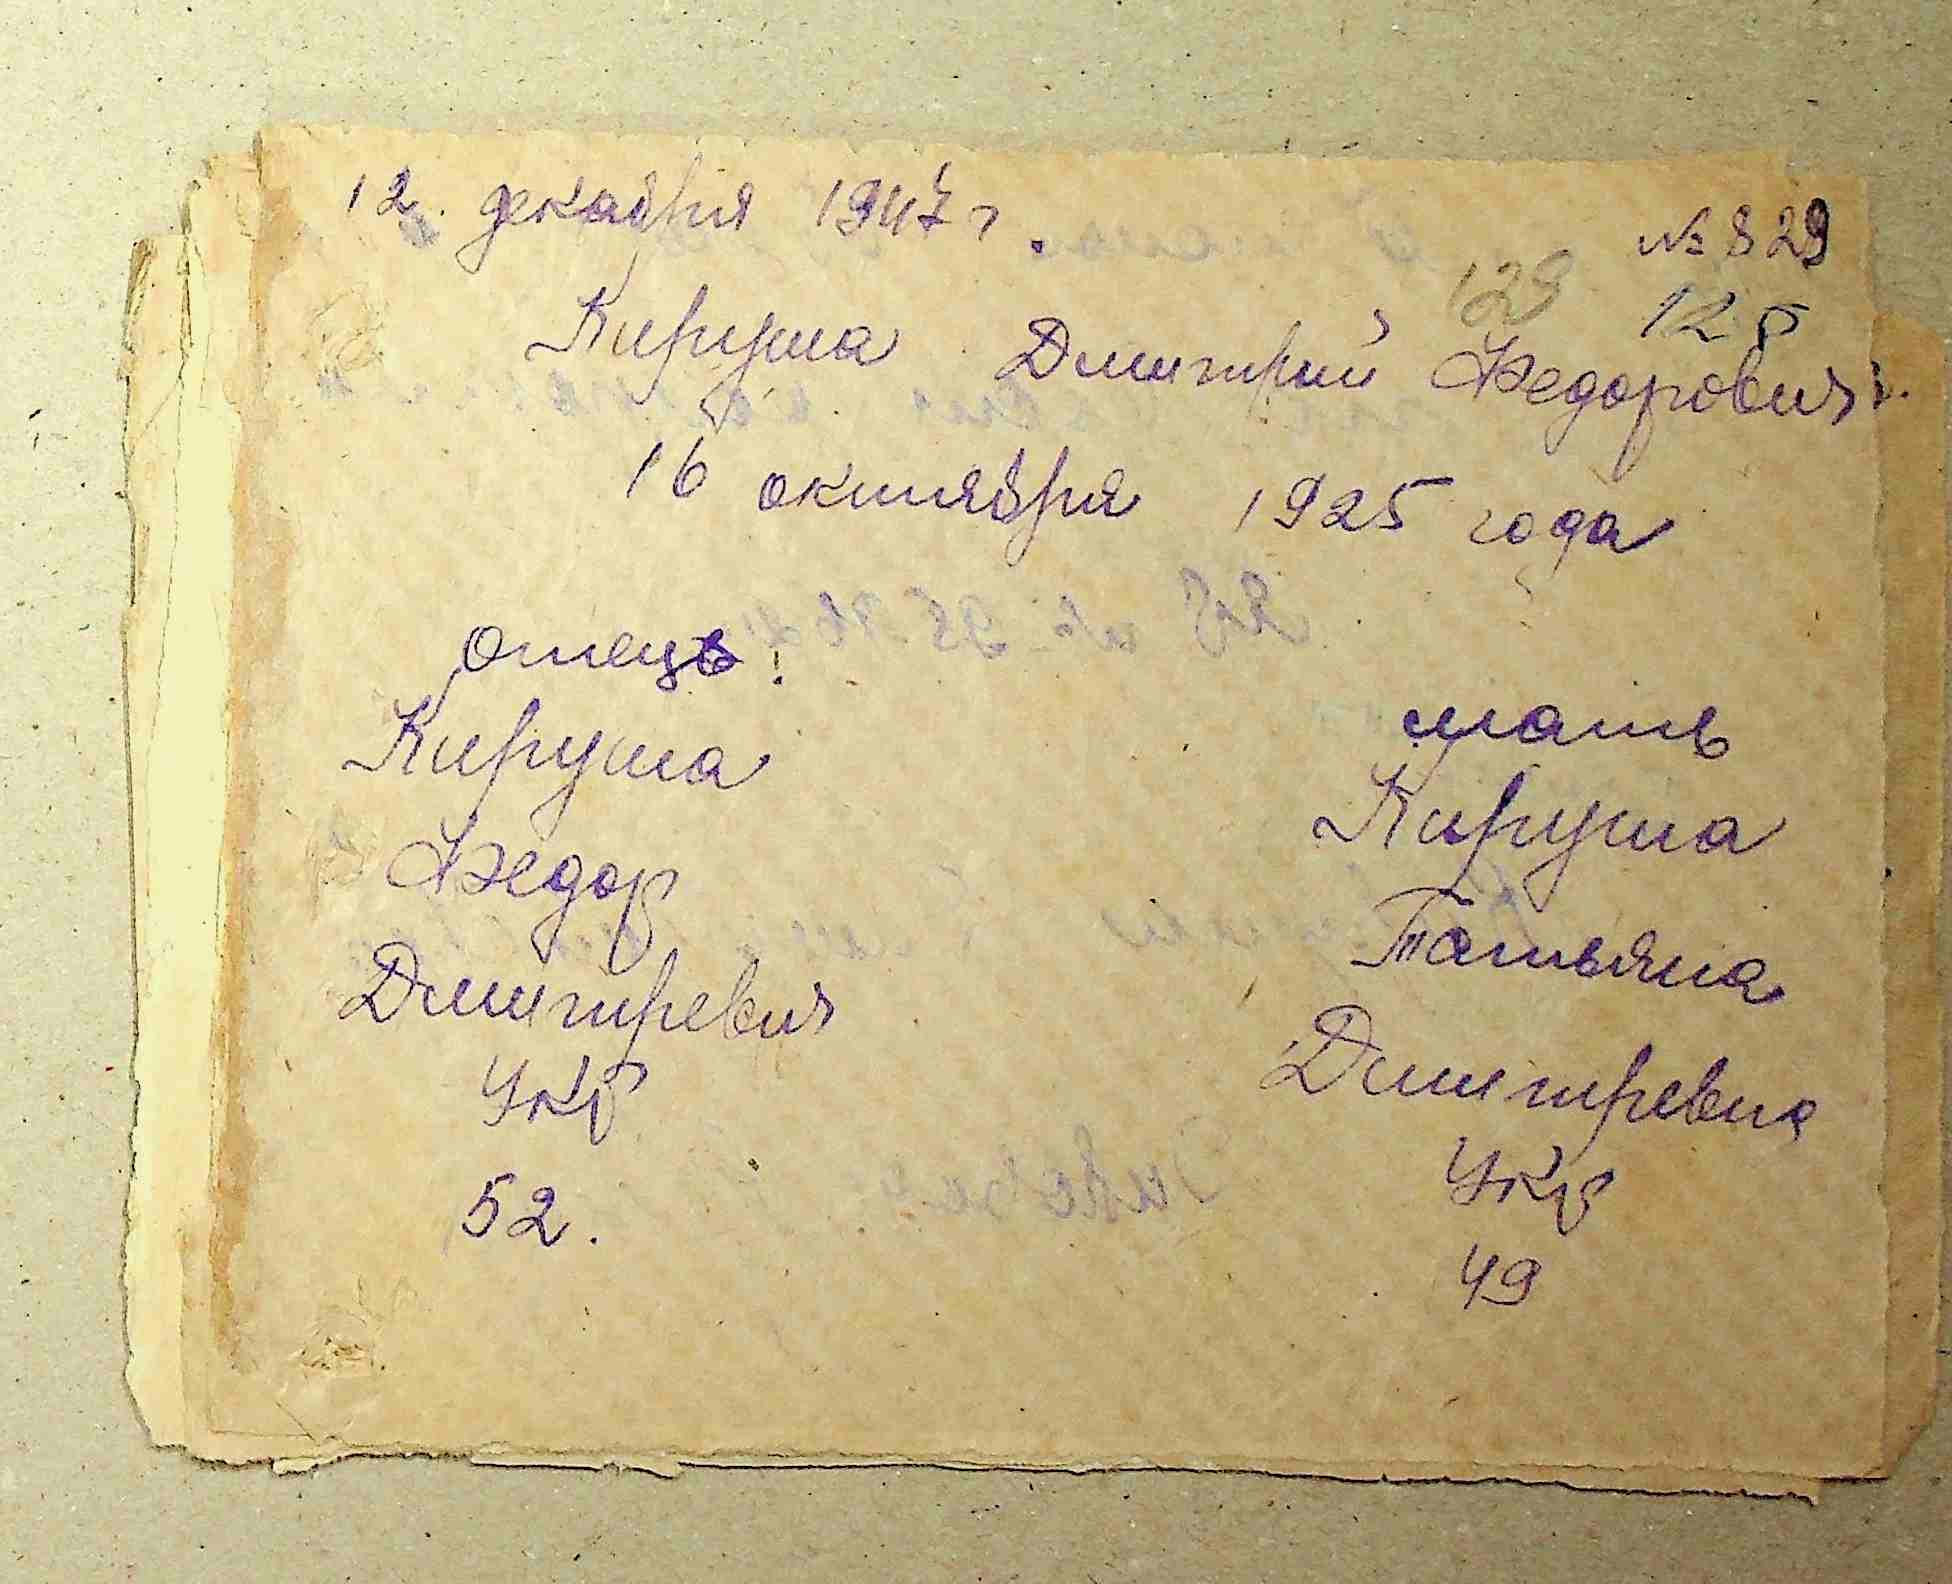 12. декабря 1947 г.
№ 829
129 125
Кируша Дмитрий Федорович.
16 октября 1925 года
отець.
Кируша
Федор
Дмитревич
Укр
52.
мать
Кируша
Татьяна
Дмитревна
Укр
49